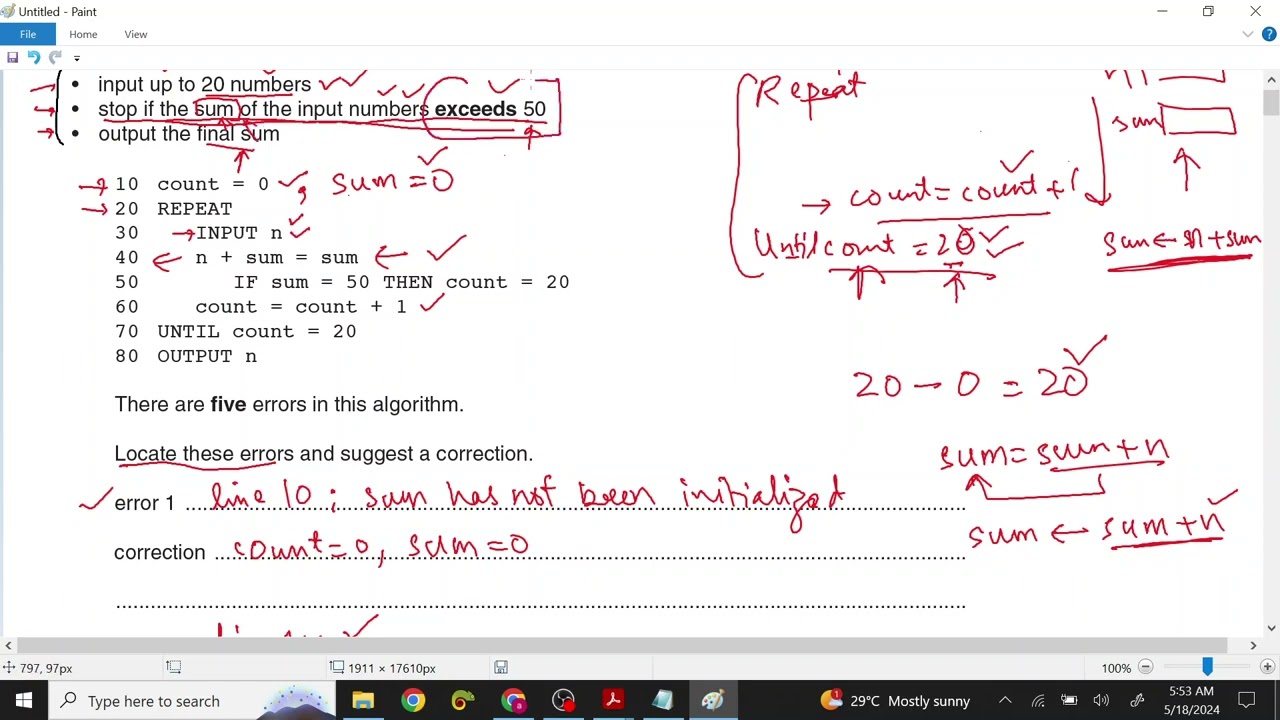 Untitled - Paint
File Home View
• input up to 20 numbers
• stop if the sum of the input numbers exceeds 50
• output the final sum
10 count = 0 , sum = 0
20 REPEAT
30 INPUT n
40 n + sum = sum
50 IF sum = 50 THEN count = 20
60 count = count + 1
70 UNTIL count = 20
80 OUTPUT n
There are five errors in this algorithm.
Locate these errors and suggest a correction.
error 1 line 10 ; sum has not been initialized
correction count = 0 , sum = 0
Repeat
count = count + 1
Until count = 20
sum
sum ← n + sum
20 - 0 = 20
sum = sum + n
sum ← sum + n
797, 97px
1911 × 17610px
100%
Type here to search
29°C Mostly sunny
5:53 AM
5/18/2024